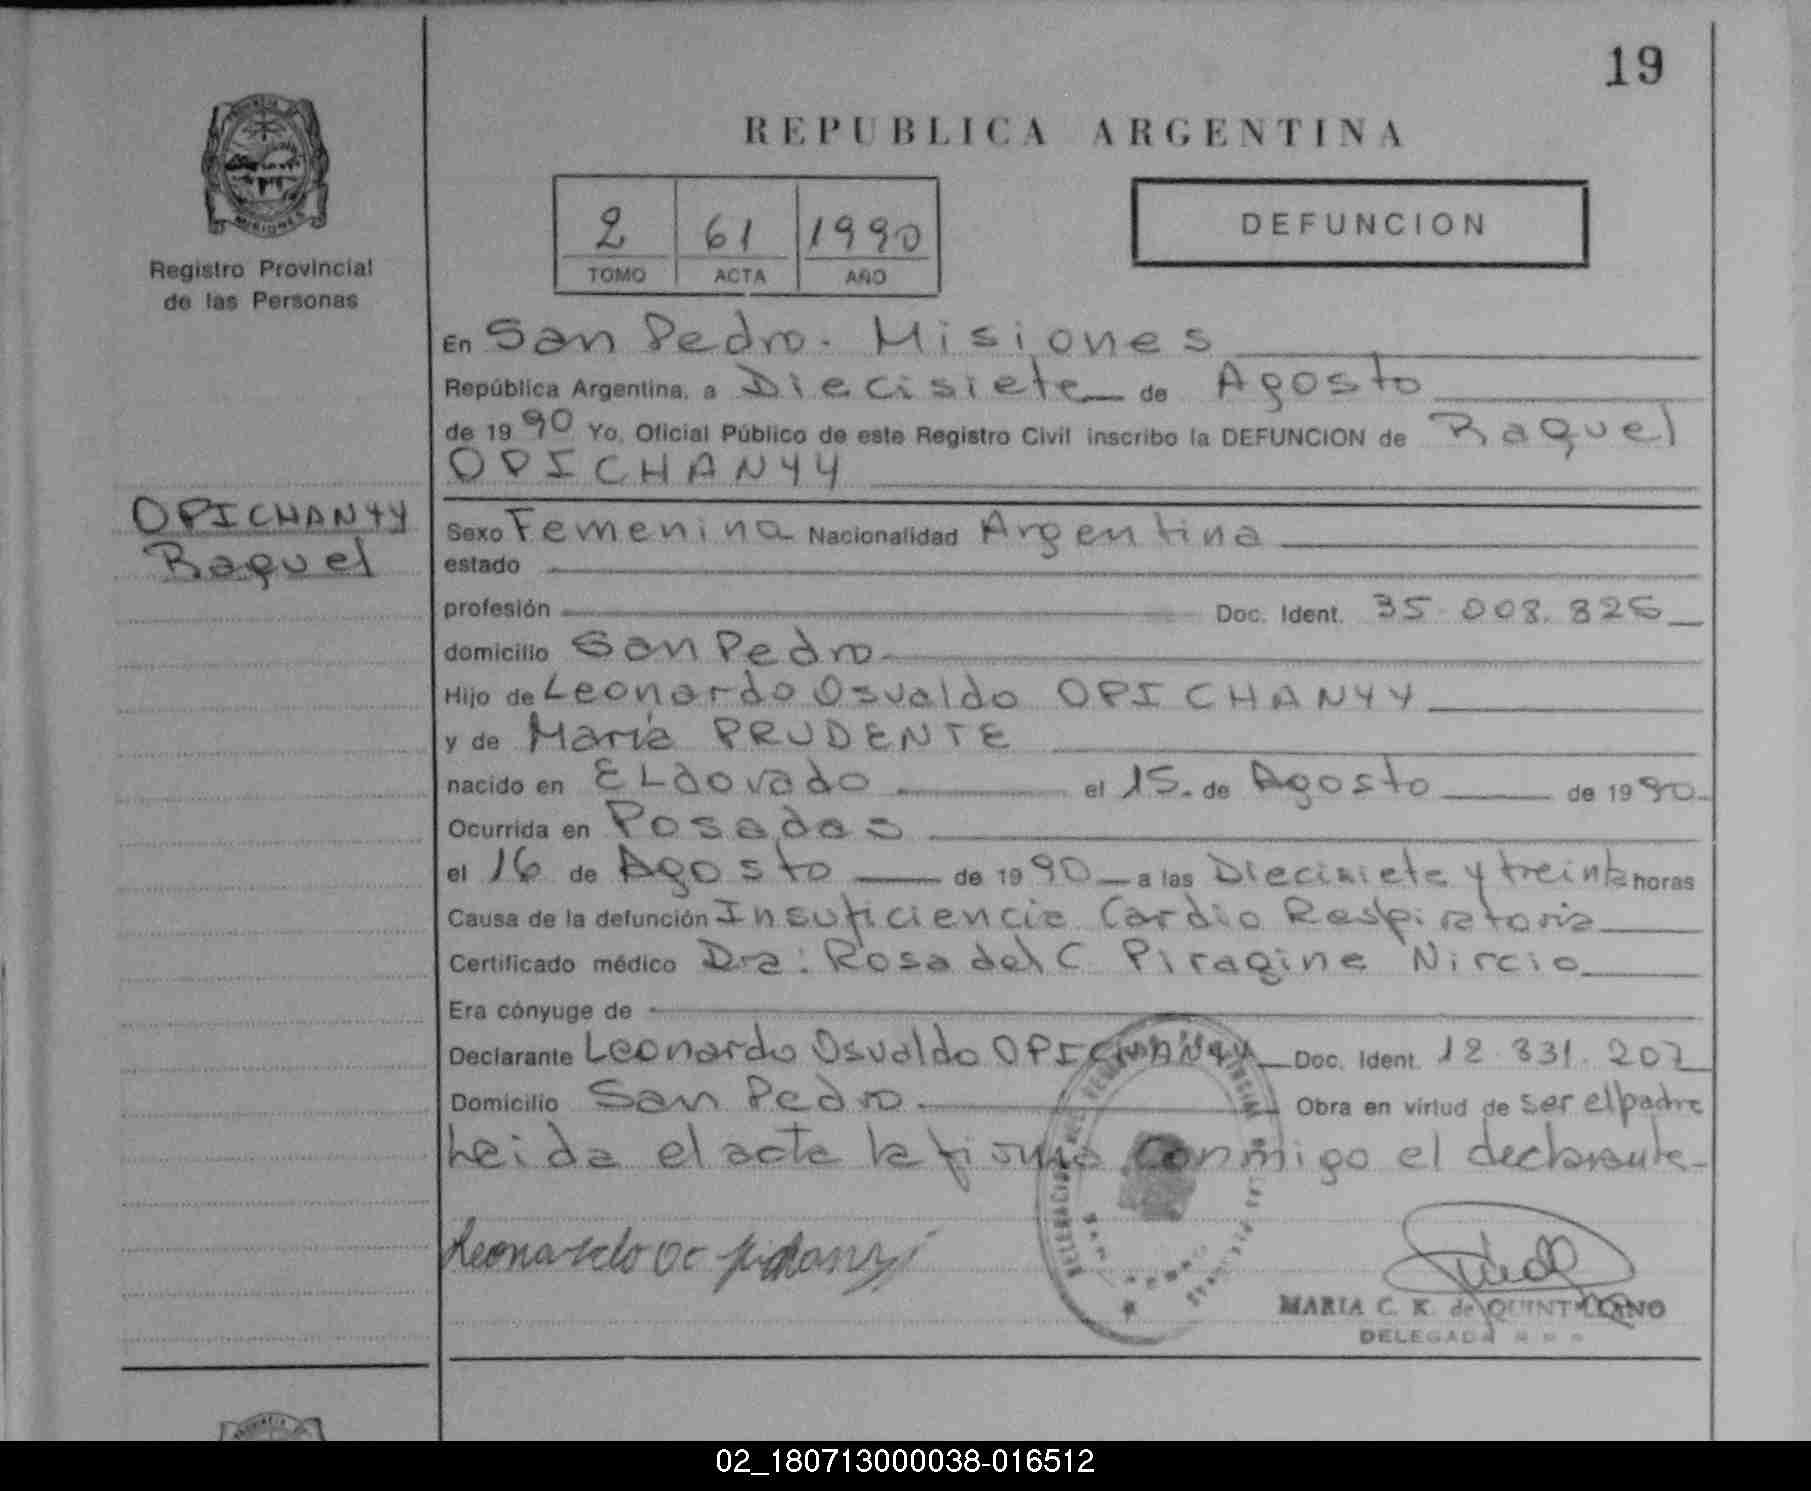 19
REPUBLICA ARGENTINA
MISIONES
Registro Provincial
de las Personas
2 61 1990
TOMO ACTA AÑO
DEFUNCION
En San Pedro. Misiones
República Argentina, a Diecisiete de Agosto
de 19 90 Yo, Oficial Público de este Registro Civil inscribo la DEFUNCION de Raquel
OPICHANYY
OPICHANYY
Raquel
Sexo Femenina Nacionalidad Argentina
estado
profesión Doc. Ident. 35.008.826
domicilio San Pedro
Hijo de Leonardo Osvaldo OPICHANYY
y de María PRUDENTE
nacido en ELdorado el 15. de Agosto de 19 90.
Ocurrida en Posadas
el 16 de Agosto de 19 90 a las Diecisiete y treinta horas
Causa de la defunción Insuficiencia Cardio Respiratoria
Certificado médico Dra: Rosa del C. Piragine Nircio
Era cónyuge de
Declarante Leonardo Osvaldo OPICHANYY Doc. Ident. 12.331.207
Domicilio San Pedro Obra en virtud de ser el padre
Leida el acta la firma conmigo el declarante
MARIA C. K. de QUINTILIANO
DELEGADA
02_180713000038-016512